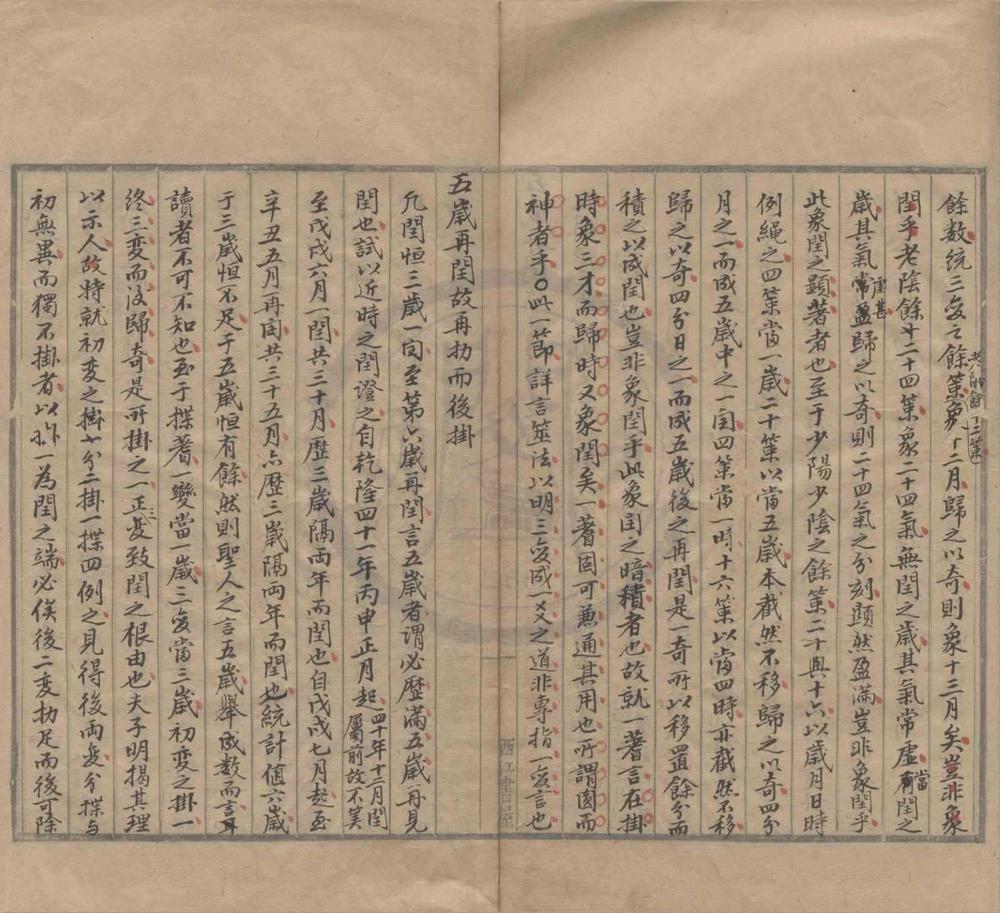 餘數統三变之餘策象十二月歸之以奇則象十三月矣豈非象
共餘十二策
閏乎老陰餘二十四策象二十四氣無閏之歲其氣常虛當閏之
歲其氣常盈歸之以奇則二十四氣之分刻顯然盈滿豈非象閏乎
此象閏之顯著者也至于少陽少陰之餘策二十與十六以歲月日時
例繩之四策當一歲二十策以當五歲本截然不移歸之以奇四分
月之一而成五歲中之一閏四策當一時十六策以當四時亦截然不移
歸之以奇四分日之一而成五歲後之再閏是一奇所以移置餘分而
積之以成閏也豈非象閏乎此象閏之暗積者也故就一蓍言在掛
時象三才而歸時又象閏矣一蓍固可兼通其用也所謂圓而
神者乎○此一節詳言筮法以明三变成一爻之道非專指一变言也
西江書塾
五歲再閏故再扐而後掛
凡閏恒三歲一閏至第六歲再閏言五歲者謂必歷滿五歲再見
閏也試以近時之閏證之自乾隆四十一年丙申正月起四十年十二月閏屬前故不筭
至戊戌六月一閏共三十月歷三歲隔兩年而閏也自戊戌七月起至
辛丑五月再閏共三十五月亦歷三歲隔兩年而閏也統計值六歲
于三歲恒不足于五歲恒有餘然則聖人之言五歲舉成數而言耳
讀者不可不知也至于揲蓍一變當一歲三变當三歲初变之掛一
終三变而没歸奇是所掛之一正三变致閏之根由也夫子明揭其理
以示人故特就初变之掛一分二掛一揲四例之見得後兩变分揲与
初無異而獨不掛者以掛一為閏之端必俟後二变扐足而後可除